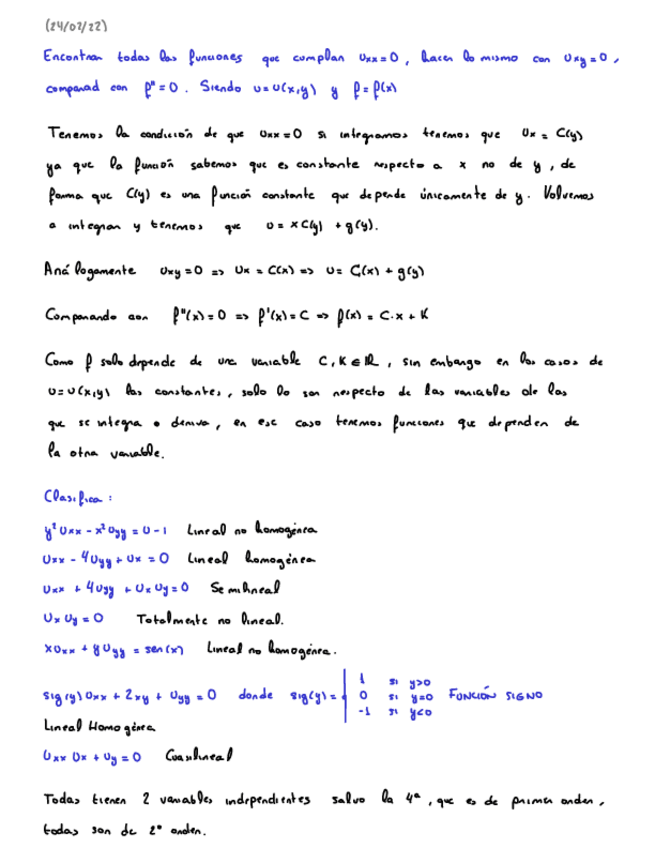 (24/02/22)
Encontrar todas las funciones que cumplan Uxx=0, hacer lo mismo con Uxy=0,
comparad con f"=0. Siendo u=u(x,y) y f=f(x)
Tenemos la condición de que Uxx=0 si integramos tenemos que Ux = C(y)
ya que la función sabemos que es constante respecto a x no de y, de
forma que C(y) es una función constante que depende únicamente de y. Volvemos
a integrar y tenemos que u = xC(y) + g(y).
Análogamente Uxy=0 => Ux = C(x) => u= C(x) + g(y)
Comparando con f"(x)=0 => f'(x)=C => f(x) = C·x + K
Como f solo depende de una variable C,K∈ℝ, sin embargo en los casos de
u=u(x,y) las constantes, solo lo son respecto de las variables de las
que se integra o deriva, en ese caso tenemos funciones que dependen de
la otra variable.
Clasifica:
y²Uxx - x²Uyy = U-1 Lineal no homogénea
Uxx - 4Uyy + Ux = 0 Lineal homogénea
Uxx + 4Uyy + UxUy=0 Semilineal
Ux Uy = 0 Totalmente no lineal.
xUxx + yUyy = sen(x) Lineal no homogénea.
sig(y)Uxx + 2xy + Uyy = 0 donde sig(y)= 1 si y>0
0 si y=0 FUNCIÓN SIGNO
-1 si y<0
Lineal Homogénea
Uxx Ux + Uy = 0 Cuasilineal
Todas tienen 2 variables independientes salvo la 4ª, que es de primer orden,
todas son de 2º orden.